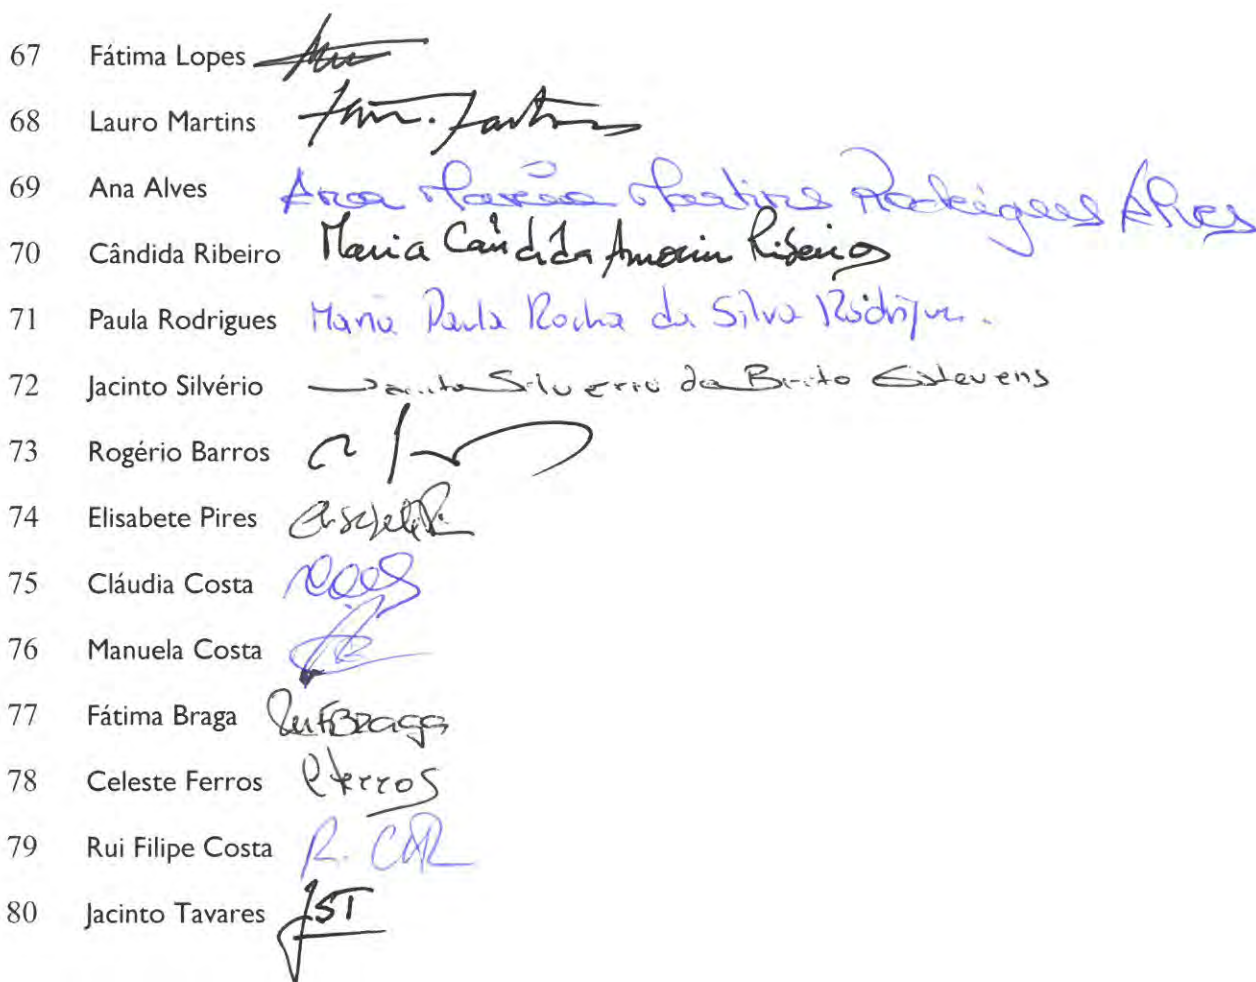 67 Fátima Lopes
68 Lauro Martins
69 Ana Alves Ana Maria Martins Rodrigues Alves
70 Cândida Ribeiro Maria Cândida Amorim Ribeiro
71 Paula Rodrigues Maria Paula Rocha da Silva Rodrigues
72 Jacinto Silvério Jacinto Silverio de Brito Estevens
73 Rogério Barros
74 Elisabete Pires
75 Cláudia Costa
76 Manuela Costa
77 Fátima Braga
78 Celeste Ferros CFerros
79 Rui Filipe Costa
80 Jacinto Tavares JST